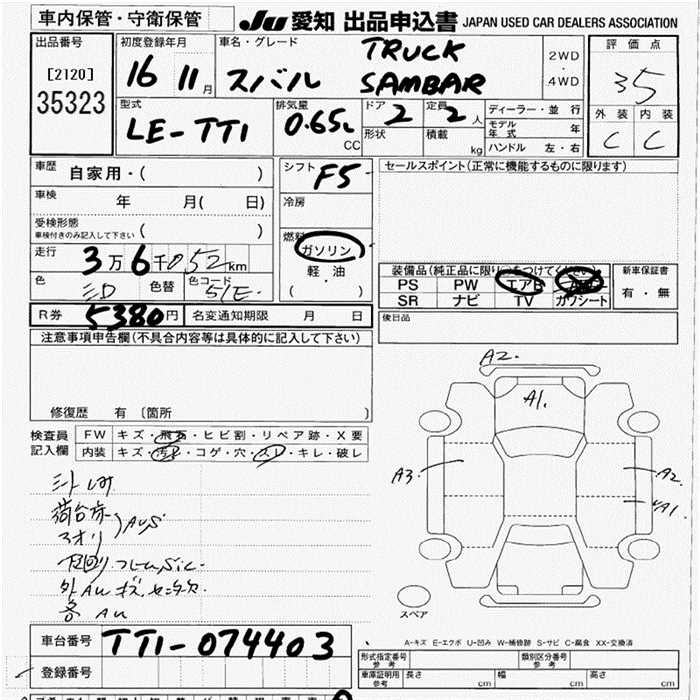 車内保管・守衛保管
JU 愛知 出品申込書 JAPAN USED CAR DEALERS ASSOCIATION
出品番号
[2120]
35323
初度登録年月
16 11月
車名・グレード
スバル TRUCK
SAMBAR
2WD
・
4WD
評価点
35
外装 内装
C C
型式
LE-TT1
排気量
0.65L
CC
ドア 2
形状
定員 2人
積載 kg
ディーラー・並行
モデル年式 年
ハンドル 左・右
車歴 自家用・( )
車検 年 月( 日)
受検形態
車検付きのみ記入して下さい ( )
走行 3万6千052km
色 色替 色コード
51E
シフト F5
冷房
燃料 ガソリン
軽油
・
( )
セールスポイント(正常に機能するものに限ります)
装備品(純正品に限り○をつけてください)
PS PW エアB
SR ナビ TV カワシート
新車保証書
有・無
後日品
R券 5380円 名変通知期限 月 日
注意事項申告欄(不具合内容等は具体的に記入して下さい)
修復歴 有 〔箇所 〕
検査員
記入欄
FW キズ・飛石・ヒビ割・リペア跡・X要
内装 キズ・汚れ・コゲ・穴・スレ・キレ・破レ
荷台床
アオリ
AUS
各 AU
A2.
A1.
A3.
A2.
A1.
スペア
A-キズ E-エクボ U-凹み W-補修跡 S-サビ C-腐食 XX-交換済
車台番号 TT1-074403
登録番号
形式指定番号
参考
類別区分番号
参考
車庫証明用
参考
長さ cm 幅 cm 高さ cm